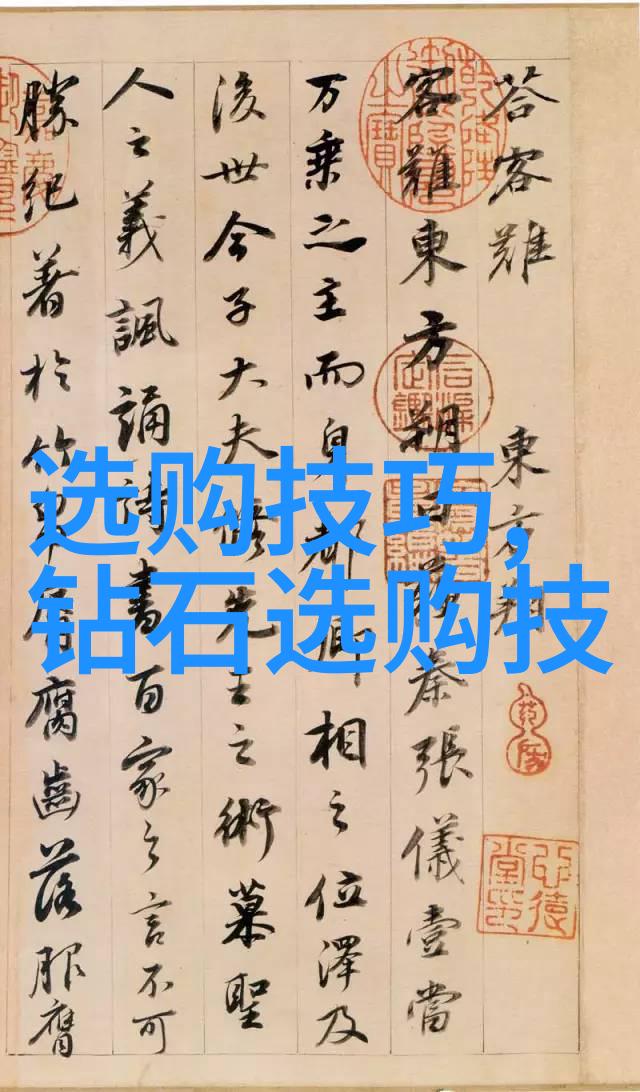 荅客難 東方朔
客難東方朔曰蘇秦張儀壹當
万乘之主而身都卿相之位澤及
後世今子大夫修先王之術慕聖
人之義諷誦詩書百家之言不可
勝紀著於竹帛脣腐齒落服膺
选购技巧,
钻石选购技